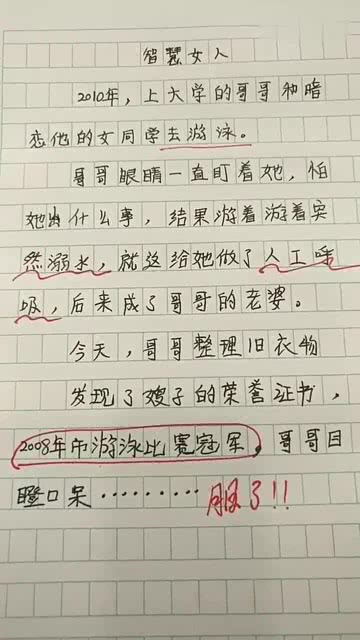 智慧女人
2010年，上大学的哥哥和暗
恋他的女同学去游泳。
哥哥眼睛一直盯着她，怕
她出什么事，结果游着游着突
然溺水，就这给她做了人工呼
吸，后来成了哥哥的老婆。
今天，哥哥整理旧衣物
发现了嫂子的荣誉证书，
2008年市游泳比赛冠军，哥哥目
瞪口呆………服了!!